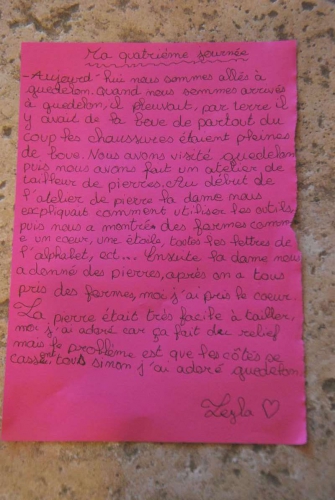 Ma quatrième journée
- Aujourd'hui nous sommes allés à
guedelon. Quand nous sommes arrivés
à guedelon, il pleuvait, par terre il
y avait de la boue de partout du
coup les chaussures étaient pleines
de boue. Nous avons visité guedelon
puis nous avons fait un atelier de
tailleur de pierres. Au début de
l'atelier de pierre la dame nous
expliquait comment utiliser les outils
puis nous a montrés des formes comm
e un coeur, une étoile, toutes les lettres de
l'alphabet, ect... Ensuite la dame nous
a donné des pierres, après on a tous
pris des formes, moi j'ai pris le coeur.
La pierre était très facile à tailler,
moi j'ai adoré car ça fait du relief
mais le problème est que les côtés se
cassent tous sinon j'ai adoré guedelon
Leyla ♡